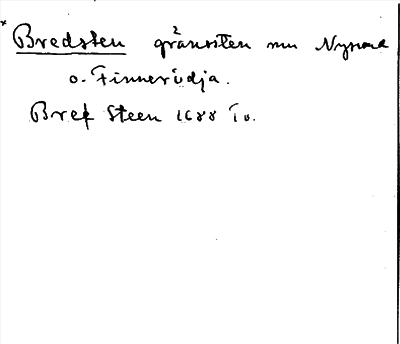 * Bredsten gränssten mu Nysund
o. Finnerödja.
Bref Steen 1688 Io.